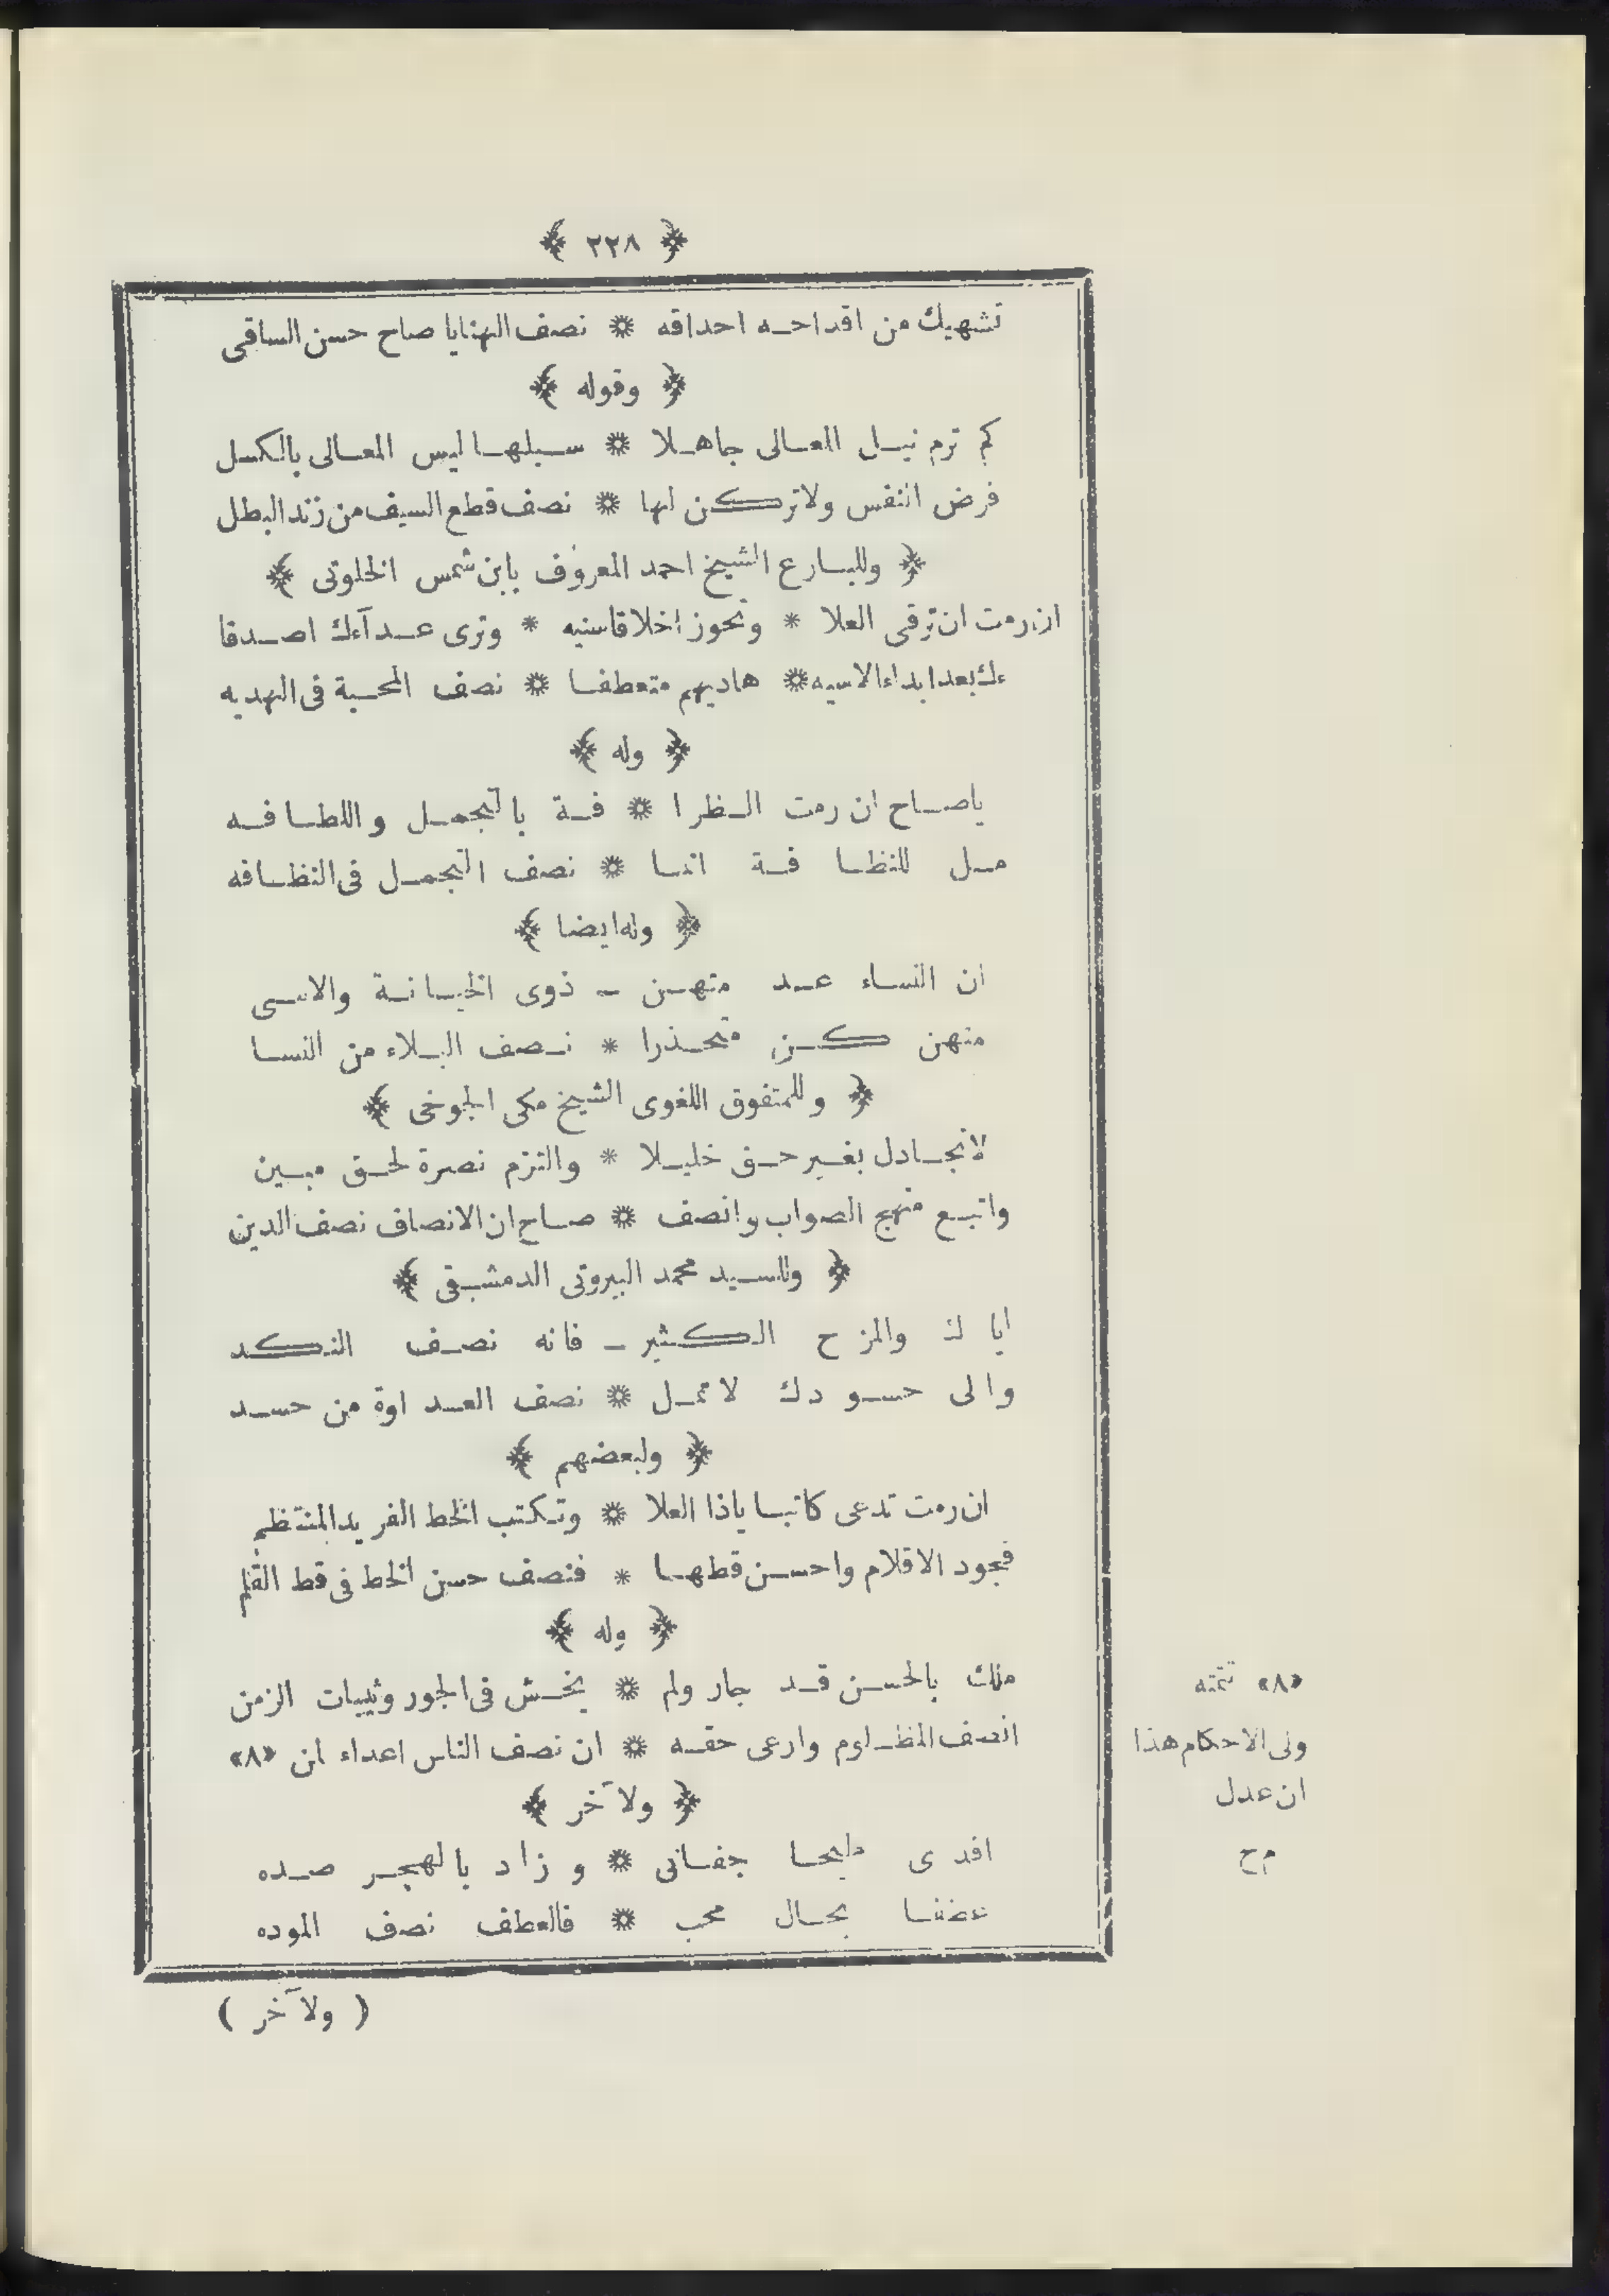 ﴿ ٢٢٨ ﴾
تشهيك من اقداحه احداقه * نصف الهنايا صاح حسن الساقى
﴿ وقوله ﴾
كم ترم نيل المعالى جاهلا * سبلها ليس المعالى بالكسل
فرض النفس ولا تركن لها * نصف قطع السيف من زند البطل
﴿ وللبارع الشيخ احمد المعروف بابن شمس الخلوتى ﴾
ان رمت ان ترقى العلا * وتحوز اخلاقا سنيه * وترى عدآءك اصدقا
ءك بعد ابداء الاسيه * هاديهم متعطفا * نصف المحبة فى الهديه
﴿ وله ﴾
ياصاح ان رمت الظرا * فة بالتجمل واللطافه
مل للنظافة انما * نصف التجمل فى النظافه
﴿ وله ايضا ﴾
ان النساء عدمتهن - ذوى الخيانة والاسى
منهن كن متحذرا * نصف البلاء من النسا
﴿ وللمتفوق اللغوى الشيخ مكى الجوخى ﴾
لا تجادل بغير حق خليلا * والتزم نصرة لحق مبين
واتبع منهج الصواب وانصف * صاح ان الانصاف نصف الدين
﴿ وللسيد محمد البيروتى الدمشقى ﴾
اياك والمزح الكثير - فانه نصف النكد
والى حسودك لا تمل * نصف العداوة من حسد
﴿ ولبعضهم ﴾
ان رمت تدعى كاتبا ياذا العلا * وتكتب الخط الفريد المنتظم
فجود الاقلام واحسن قطها * فنصف حسن الخط فى قط القلم
﴿ وله ﴾
ملك بالحسن قد جار ولم * يخش فى الجور وثيبات الزمن
انصف المظلوم وارعى حقه * ان نصف الناس اعداء لمن «٨»
﴿ ولآخر ﴾
افدى مليحا جفانى * وزاد بالهجر صده
عطفا بحال محب * فالعطف نصف الموده
( ولآخر )
«٨» تتمته
ولى الاحكام هذا
ان عدل
م ح